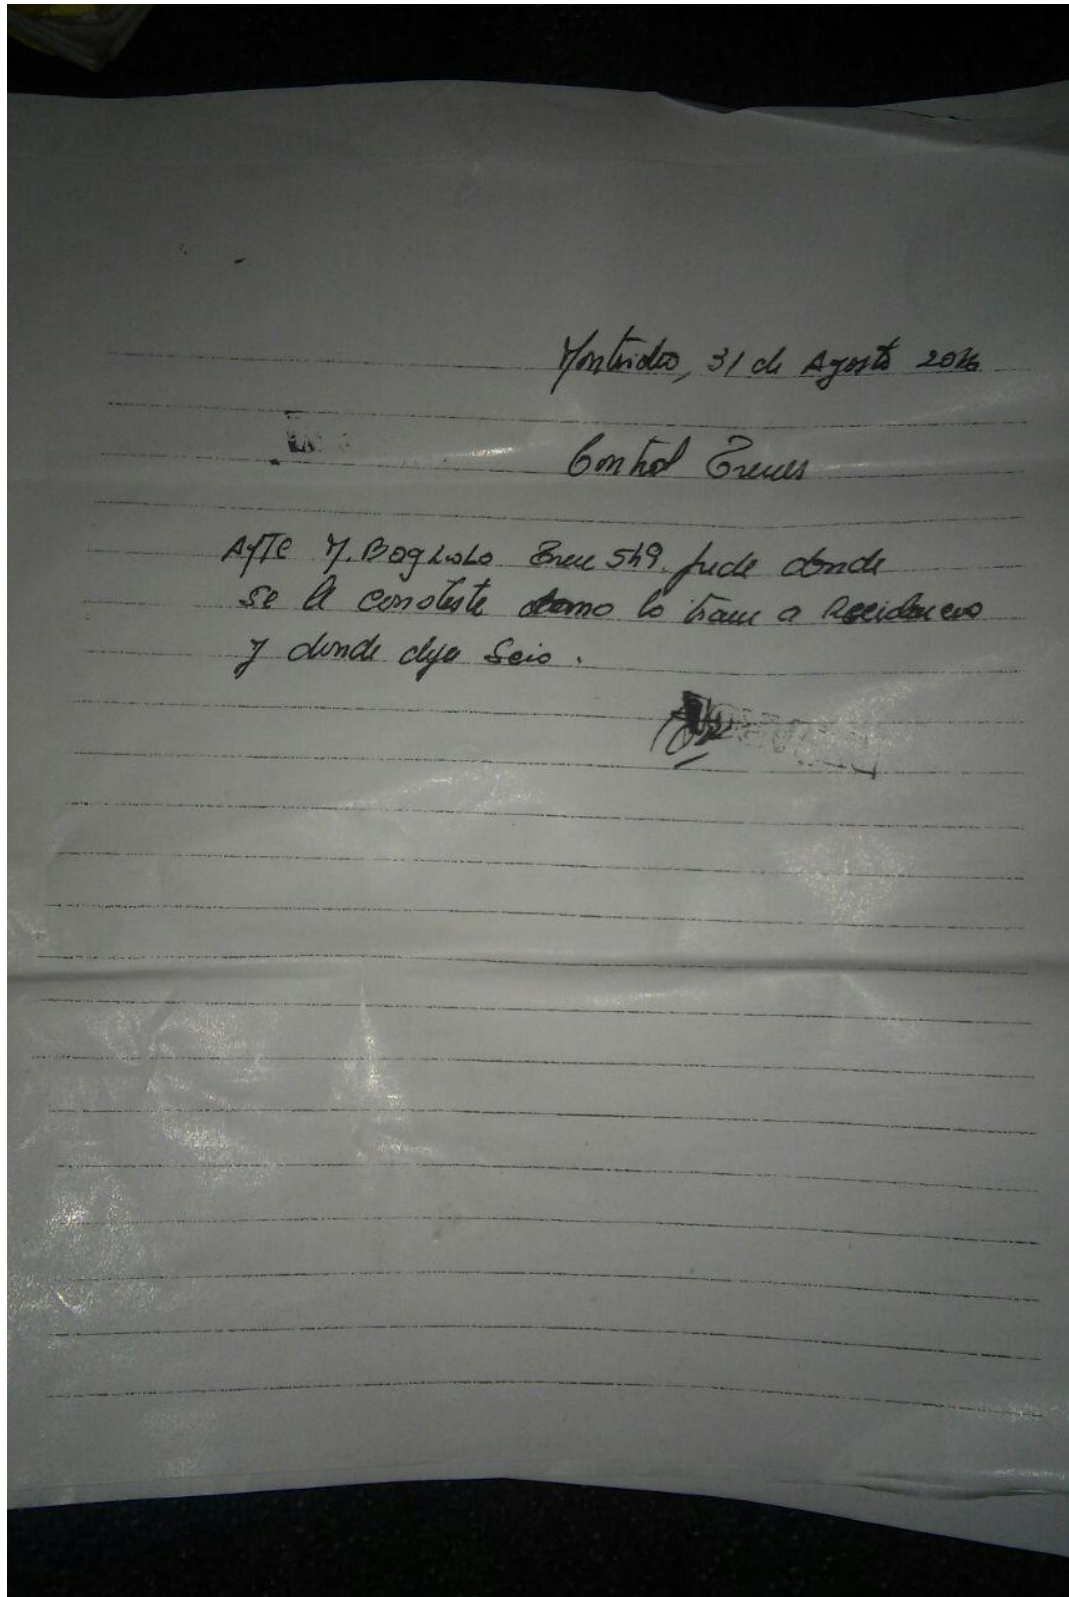 Montevideo, 31 de Agosto 2016
Control Trenes
Ayte M. Bogliolo Tren 549. pide donde
se le conteste como lo traen a Residencia
y donde deja Scio.